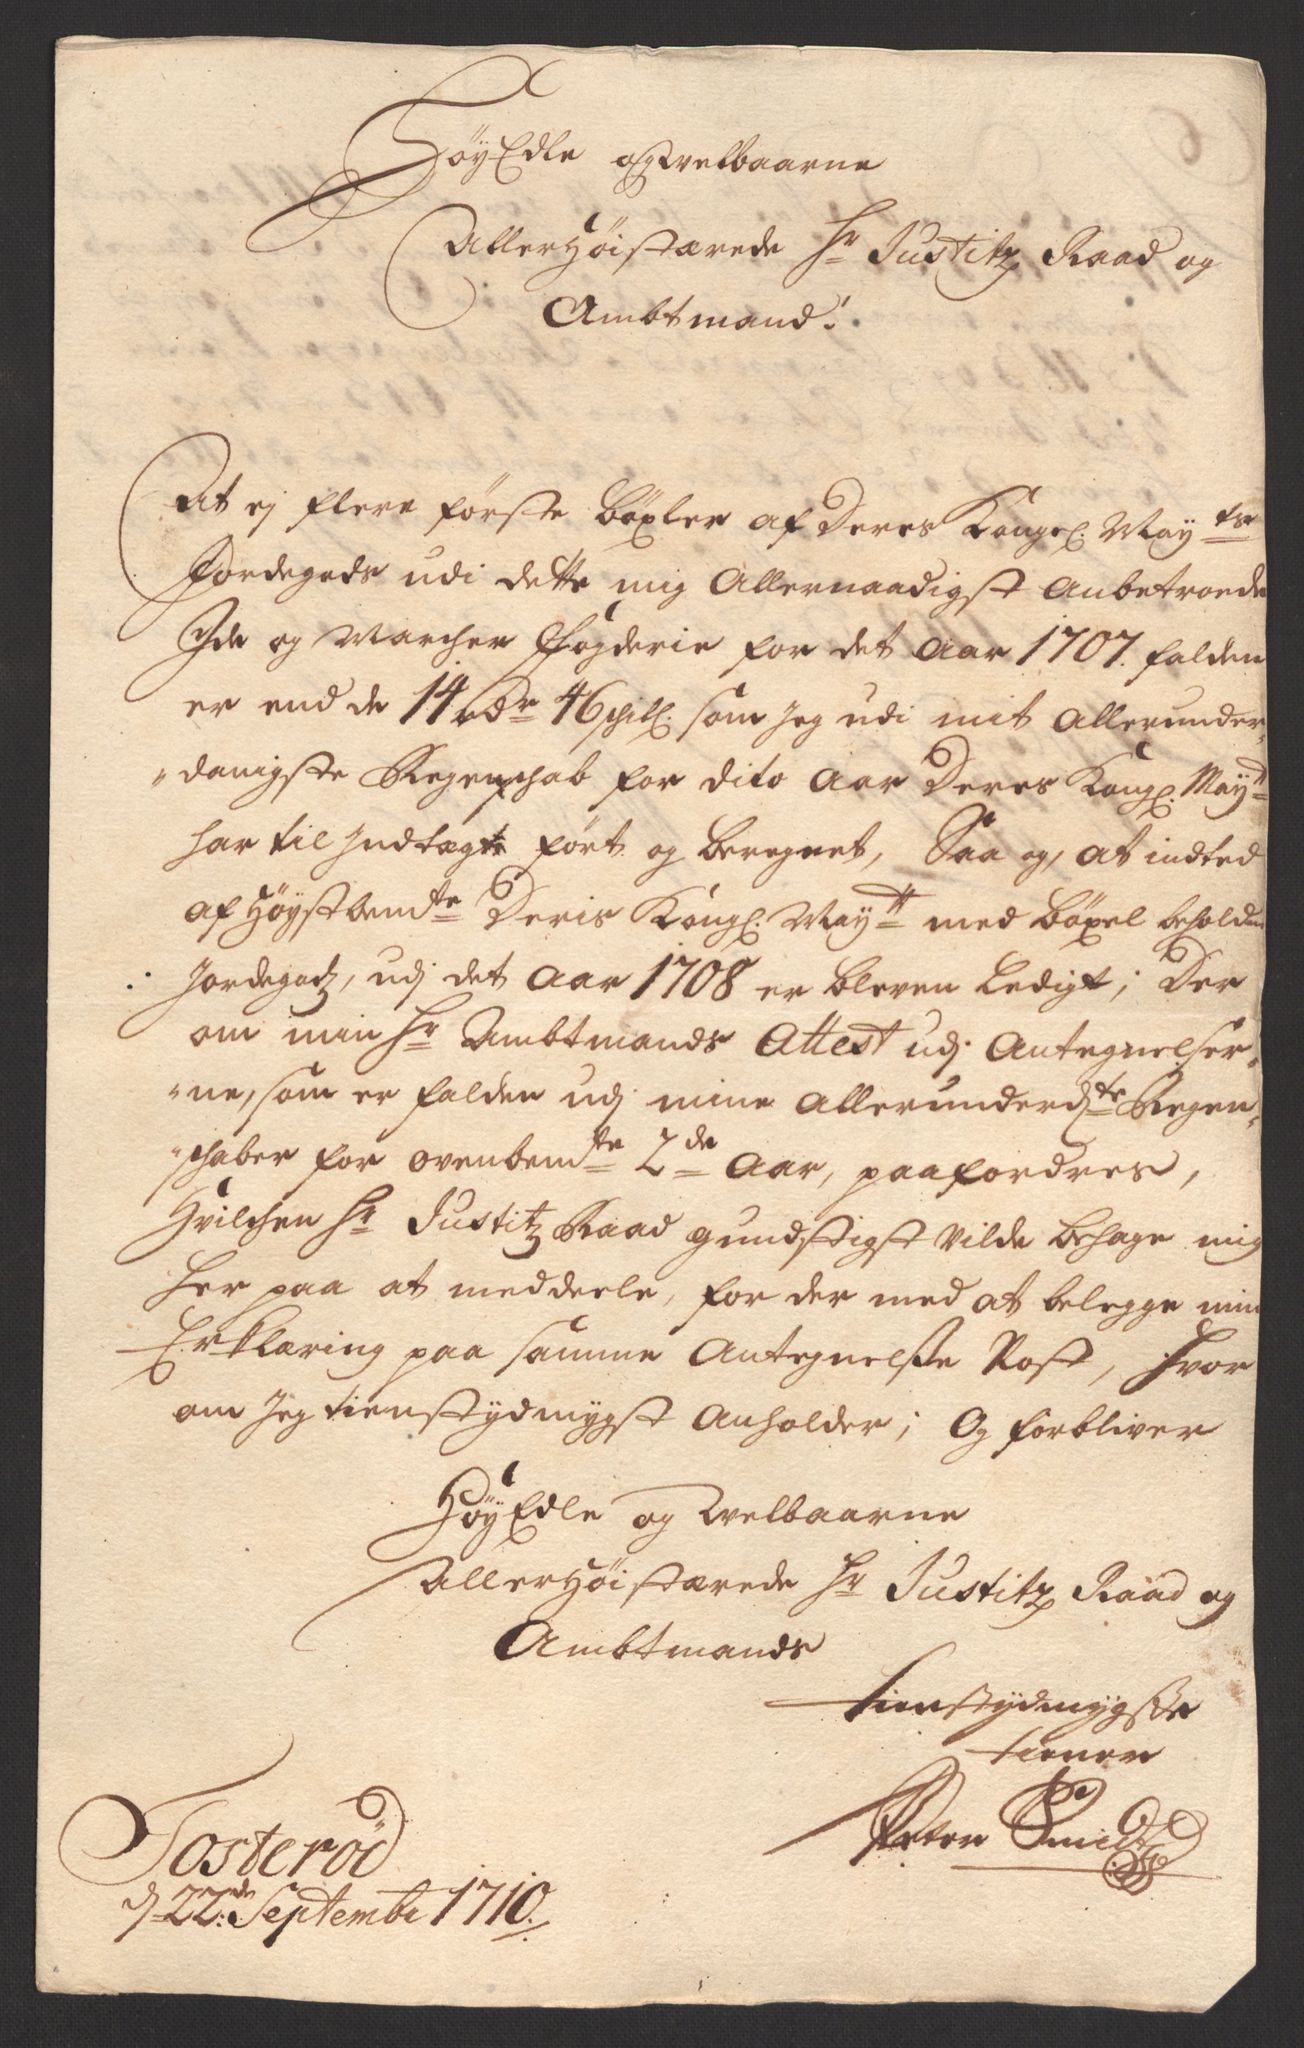 HöyEdle og Welbaarne
AllerHöistærede Hr Justitz Raad og
Ambtmand!
At ej flere förste böxler af Deres Kongel. Mayts
Jordegods udi dette mig Allernaadigst Anbetroede
Ide og Marcher Fogderie for det Aar 1707. falden
er end de 14 rdr 46 skill. som jeg udi mit Allerunder-
danigste Regenschab for dito Aar Deres Kongl. Mayt
har til Indtægt fört og beregnet, Saa og, at indted
af Höystbemte Deris Kongl. Maytt med böxel beholdne
Jordegodz, udj det Aar 1708 er bleven Ledigt; Der
om min Hr Ambtmands Attest udj Antegnelser-
ne, som er falden udj mine Allerunderdte Regen-
schaber for ovenbemte 2de Aar, paafordres,
Hvilchen Hr Justitz Raad gundstigst Vilde behage mig
her paa at meddeele, for der med at belegge min
Erklæring paa samme Antegnelse Post, Hvor
om jeg tienstydmygst Anholder; Og forbliver
HöyEdle og Welbaarne
AllerHöistærede Hr Justitz Raad og
Ambtmands
tienstydmygste
tiener
Peter Smidt
Tosteröd
d 22de Septembr 1710.